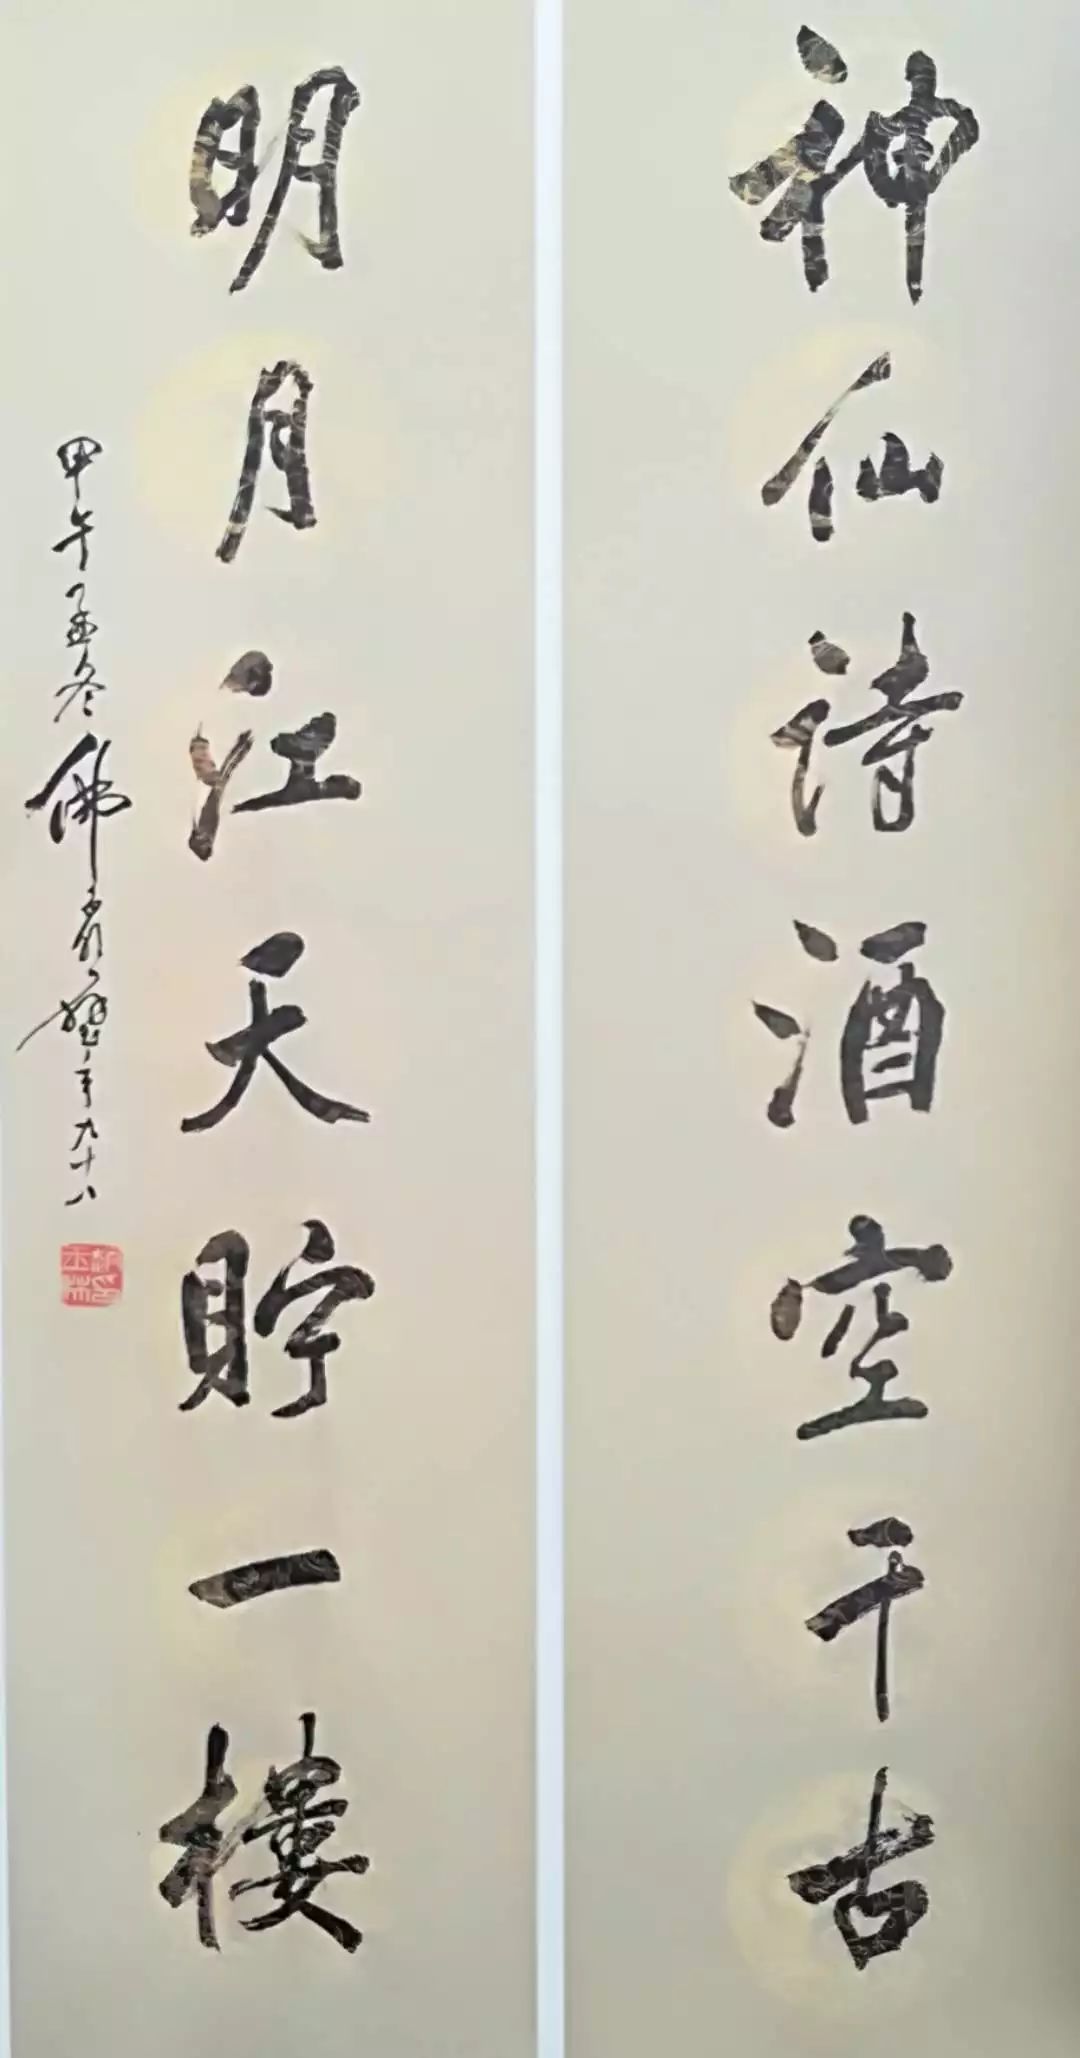 神仙诗酒空千古
明月江天貯一樓
甲午孟冬佛君年九十八